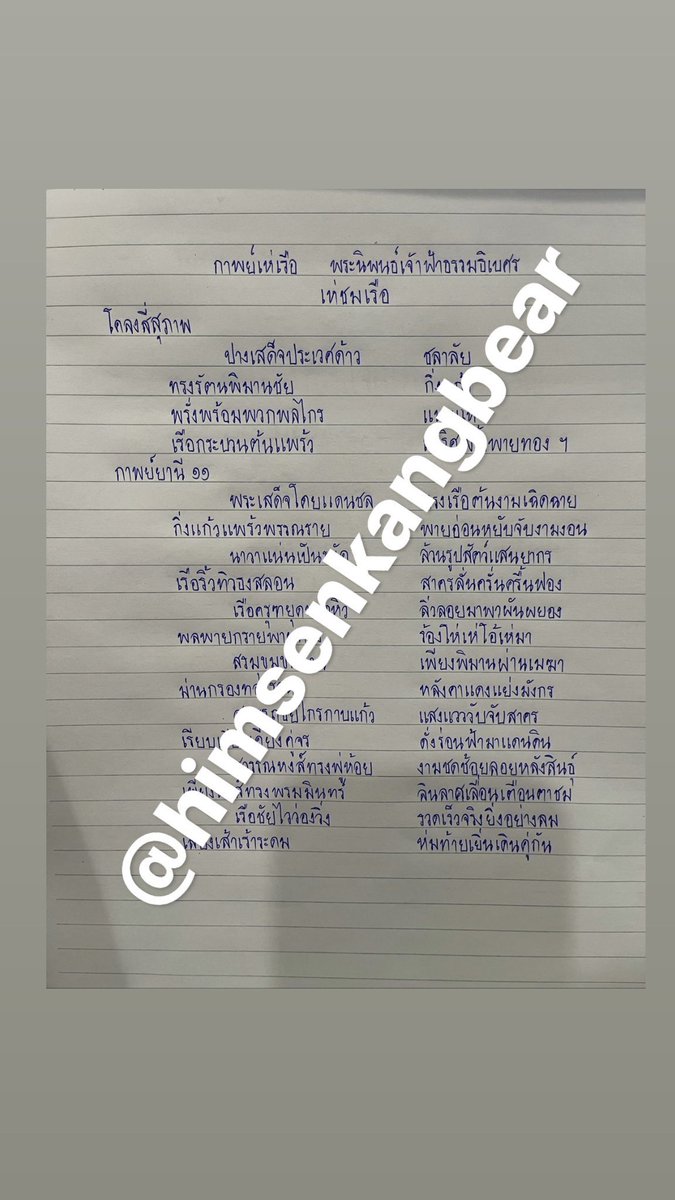 กาพย์เห่เรือ พระนิพนธ์เจ้าฟ้าธรรมธิเบศร
เห่ชมเรือ
โคลงสี่สุภาพ
ปางเสด็จประเวศด้าว ชลาลัย
ทรงรัตนพิมานชัย กิ่ง
พรั่งพร้อมพวกพลไกร
เรือกระบวนต้นแพร้ว พายทอง ฯ
กาพย์ยานี ๑๑
พระเสด็จโดยแดนชล เรือต้นงามเฉิดฉาย
กิ่งแก้วแพร้วพรรณราย พายอ่อนหยับจับงามงอน
นาวาแน่นเป็น ล้วนรูปสัตว์แสนยากร
เรือริ้วทิวธงสลอน สาครลั่นครั่นครื้นฟอง
เรือครุฑยุด หิ้ว ลิ่วลอยมาพาผันผยอง
พลพายกรายพาย ร้องโห่เห่โอ้เห่มา
สรมุข เพียงพิมานผ่านเมฆา
ม่านกรอง หลังคาแดงแย่งมังกร
ไกรกาบแก้ว แสงแวววับจับสาคร
เรียบ เคียงคู่จร ดั่งร่อนฟ้ามาแดนดิน
สุวรรณหงส์ทรงพู่ห้อย งามชดช้อยลอยหลังสินธุ์
เพียงหงส์ทรงพรหมมินทร์ ลินลาศเลื่อนเตือนตาชม
เรือชัยไวว่องวิ่ง รวดเร็วจริงยิ่งอย่างลม
เสียงเส้าเร้าระดม ห่มท้ายเยิ่นเดินคู่กัน
@himsenkangbear